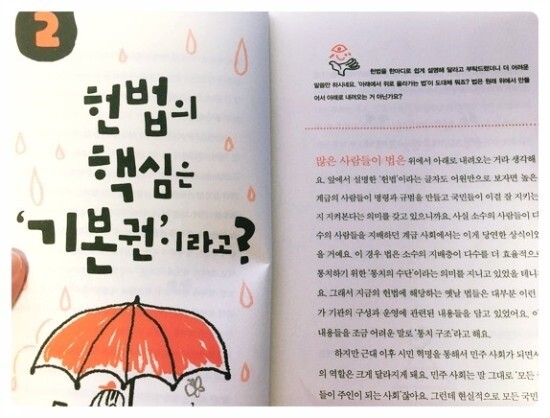 2
헌법의
핵심은
'기본권'이라고?
헌법을 한마디로 쉽게 설명해 달라고 부탁드렸더니 더 어려운
말씀만 하시네요. '아래에서 위로 올라가는 법'이 도대체 뭐죠? 법은 원래 위에서 만들
어서 아래로 내려오는 거 아닌가요?
많은 사람들이 법은 위에서 아래로 내려오는 거라 생각해
요. 앞에서 설명한 '헌법'이라는 글자도 어원만으로 보자면 높은
계급의 사람들이 명령과 규범을 만들고 국민들이 이걸 잘 지키는
지 지켜본다는 의미를 갖고 있으니까요. 사실 소수의 사람들이 다
수의 사람들을 지배하던 계급 사회에서는 이게 당연한 상식이었
을 거예요. 이 경우 법은 소수의 지배층이 다수를 더 효율적으로
통치하기 위한 '통치의 수단'이라는 의미를 지니고 있었을 테니
요. 그래서 지금의 헌법에 해당하는 옛날 법들은 대부분 이런
가 기관의 구성과 운영에 관련된 내용들을 담고 있었어요. 이
내용들을 조금 어려운 말로 '통치 구조'라고 해요.
하지만 근대 이후 시민 혁명을 통해서 민주 사회가 되면서
의 역할은 크게 달라지게 돼요. 민주 사회는 말 그대로 '모든
들이 주인이 되는 사회'잖아요. 그런데 현실적으로 모든 국민